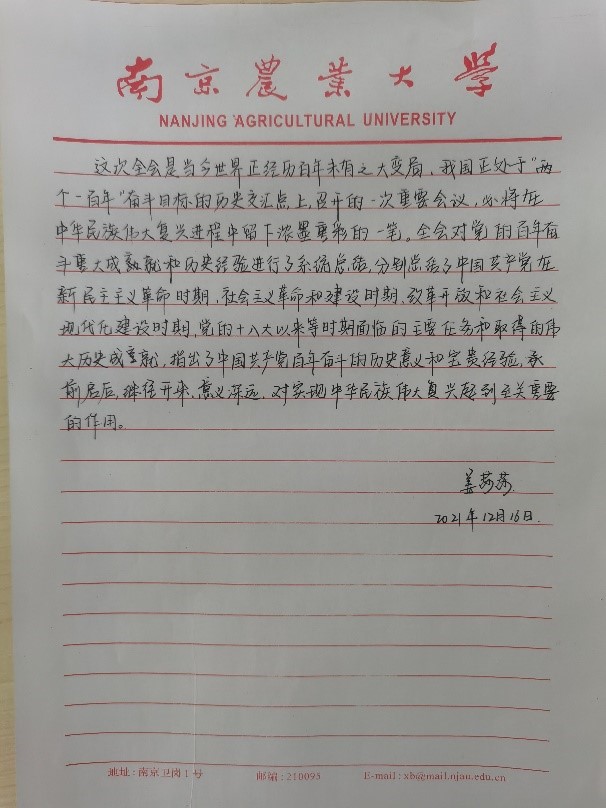 南京農業大學
NANJING AGRICULTURAL UNIVERSITY
这次全会是当今世界正经历百年未有之大变局、我国正处于“两
个一百年”奋斗目标的历史交汇点上召开的一次重要会议，必将在
中华民族伟大复兴进程中留下浓墨重彩的一笔。全会对党的百年奋
斗重大成就和历史经验进行了系统总结，分别总结了中国共产党在
新民主主义革命时期、社会主义革命和建设时期、改革开放和社会主义
现代化建设时期、党的十八大以来等时期面临的主要任务和取得的伟
大历史成就，指出了中国共产党百年奋斗的历史意义和宝贵经验，承
前启后，继往开来，意义深远，对实现中华民族伟大复兴起到至关重要
的作用。
姜莎莎
2021年12月16日
地址：南京卫岗1号 邮编：210095 E-mail：xb@mail.njau.edu.cn